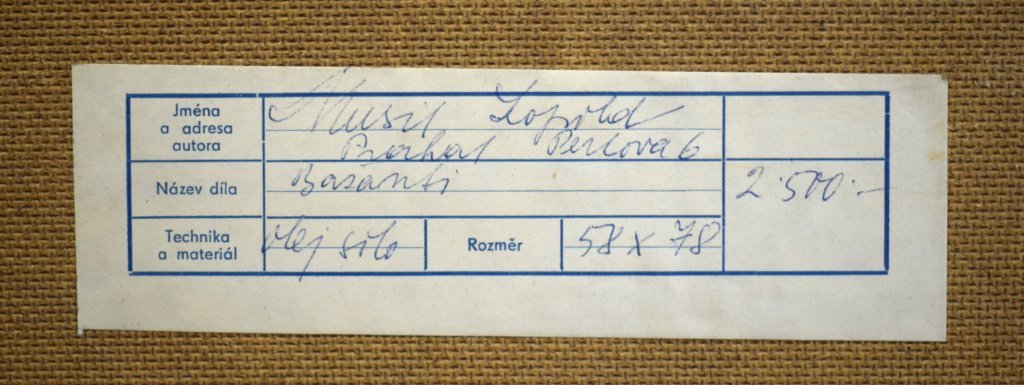 Jména
a adresa
autora
Musil Leopold
Praha 1 Perlova 6
Název díla
Bažanti
2.500.-
Technika
a materiál
olej
Rozměr
58 x 78